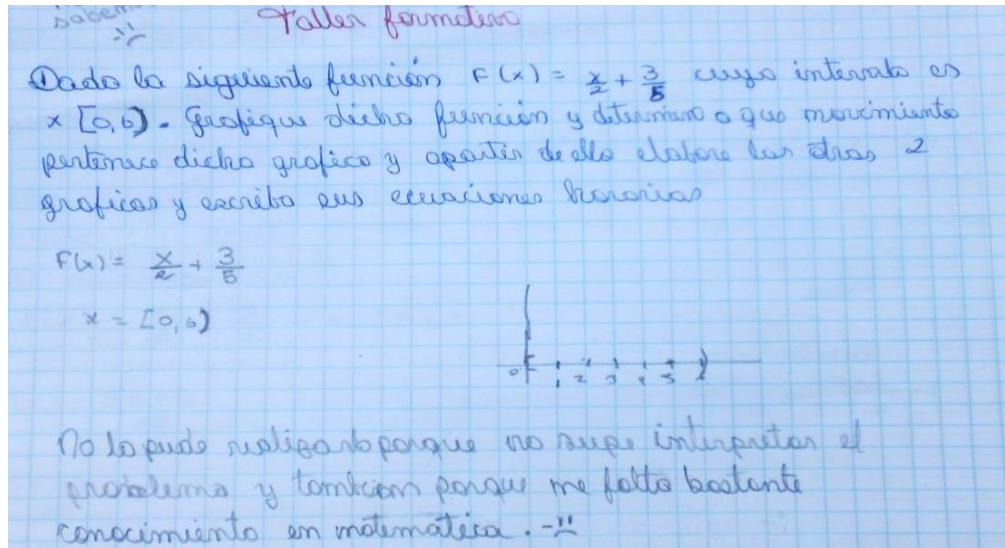 sabem
Taller formativo
Dada la siguiente función F(x) = x/2 + 3/5 cuyo intervalo es
x [0,6). Grafique dicha función y determine a que movimiento
pertenece dicha grafica y apartir de ello elabore las otras 2
graficas y escriba sus ecuaciones horarias
F(x) = x/2 + 3/5
x = [0,6)
0 1 2 3 4 5 6
No lo pude realizarlo porque no supe interpretar el
problema y tambien porque me falta bastante
conocimiento en matemática. -"